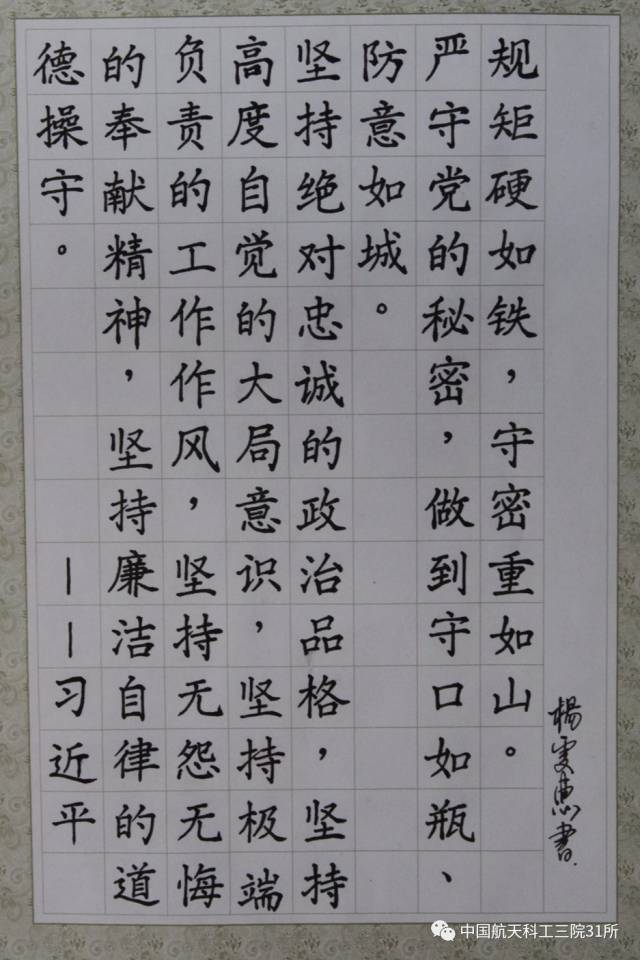 规矩硬如铁，守密重如山。
严守党的秘密，做到守口如瓶、
防意如城。
坚持绝对忠诚的政治品格，坚持
高度自觉的大局意识，坚持极端
负责的工作作风，坚持无怨无悔
的奉献精神，坚持廉洁自律的道
德操守。——习近平
楊雯惠書
中国航天科工三院31所